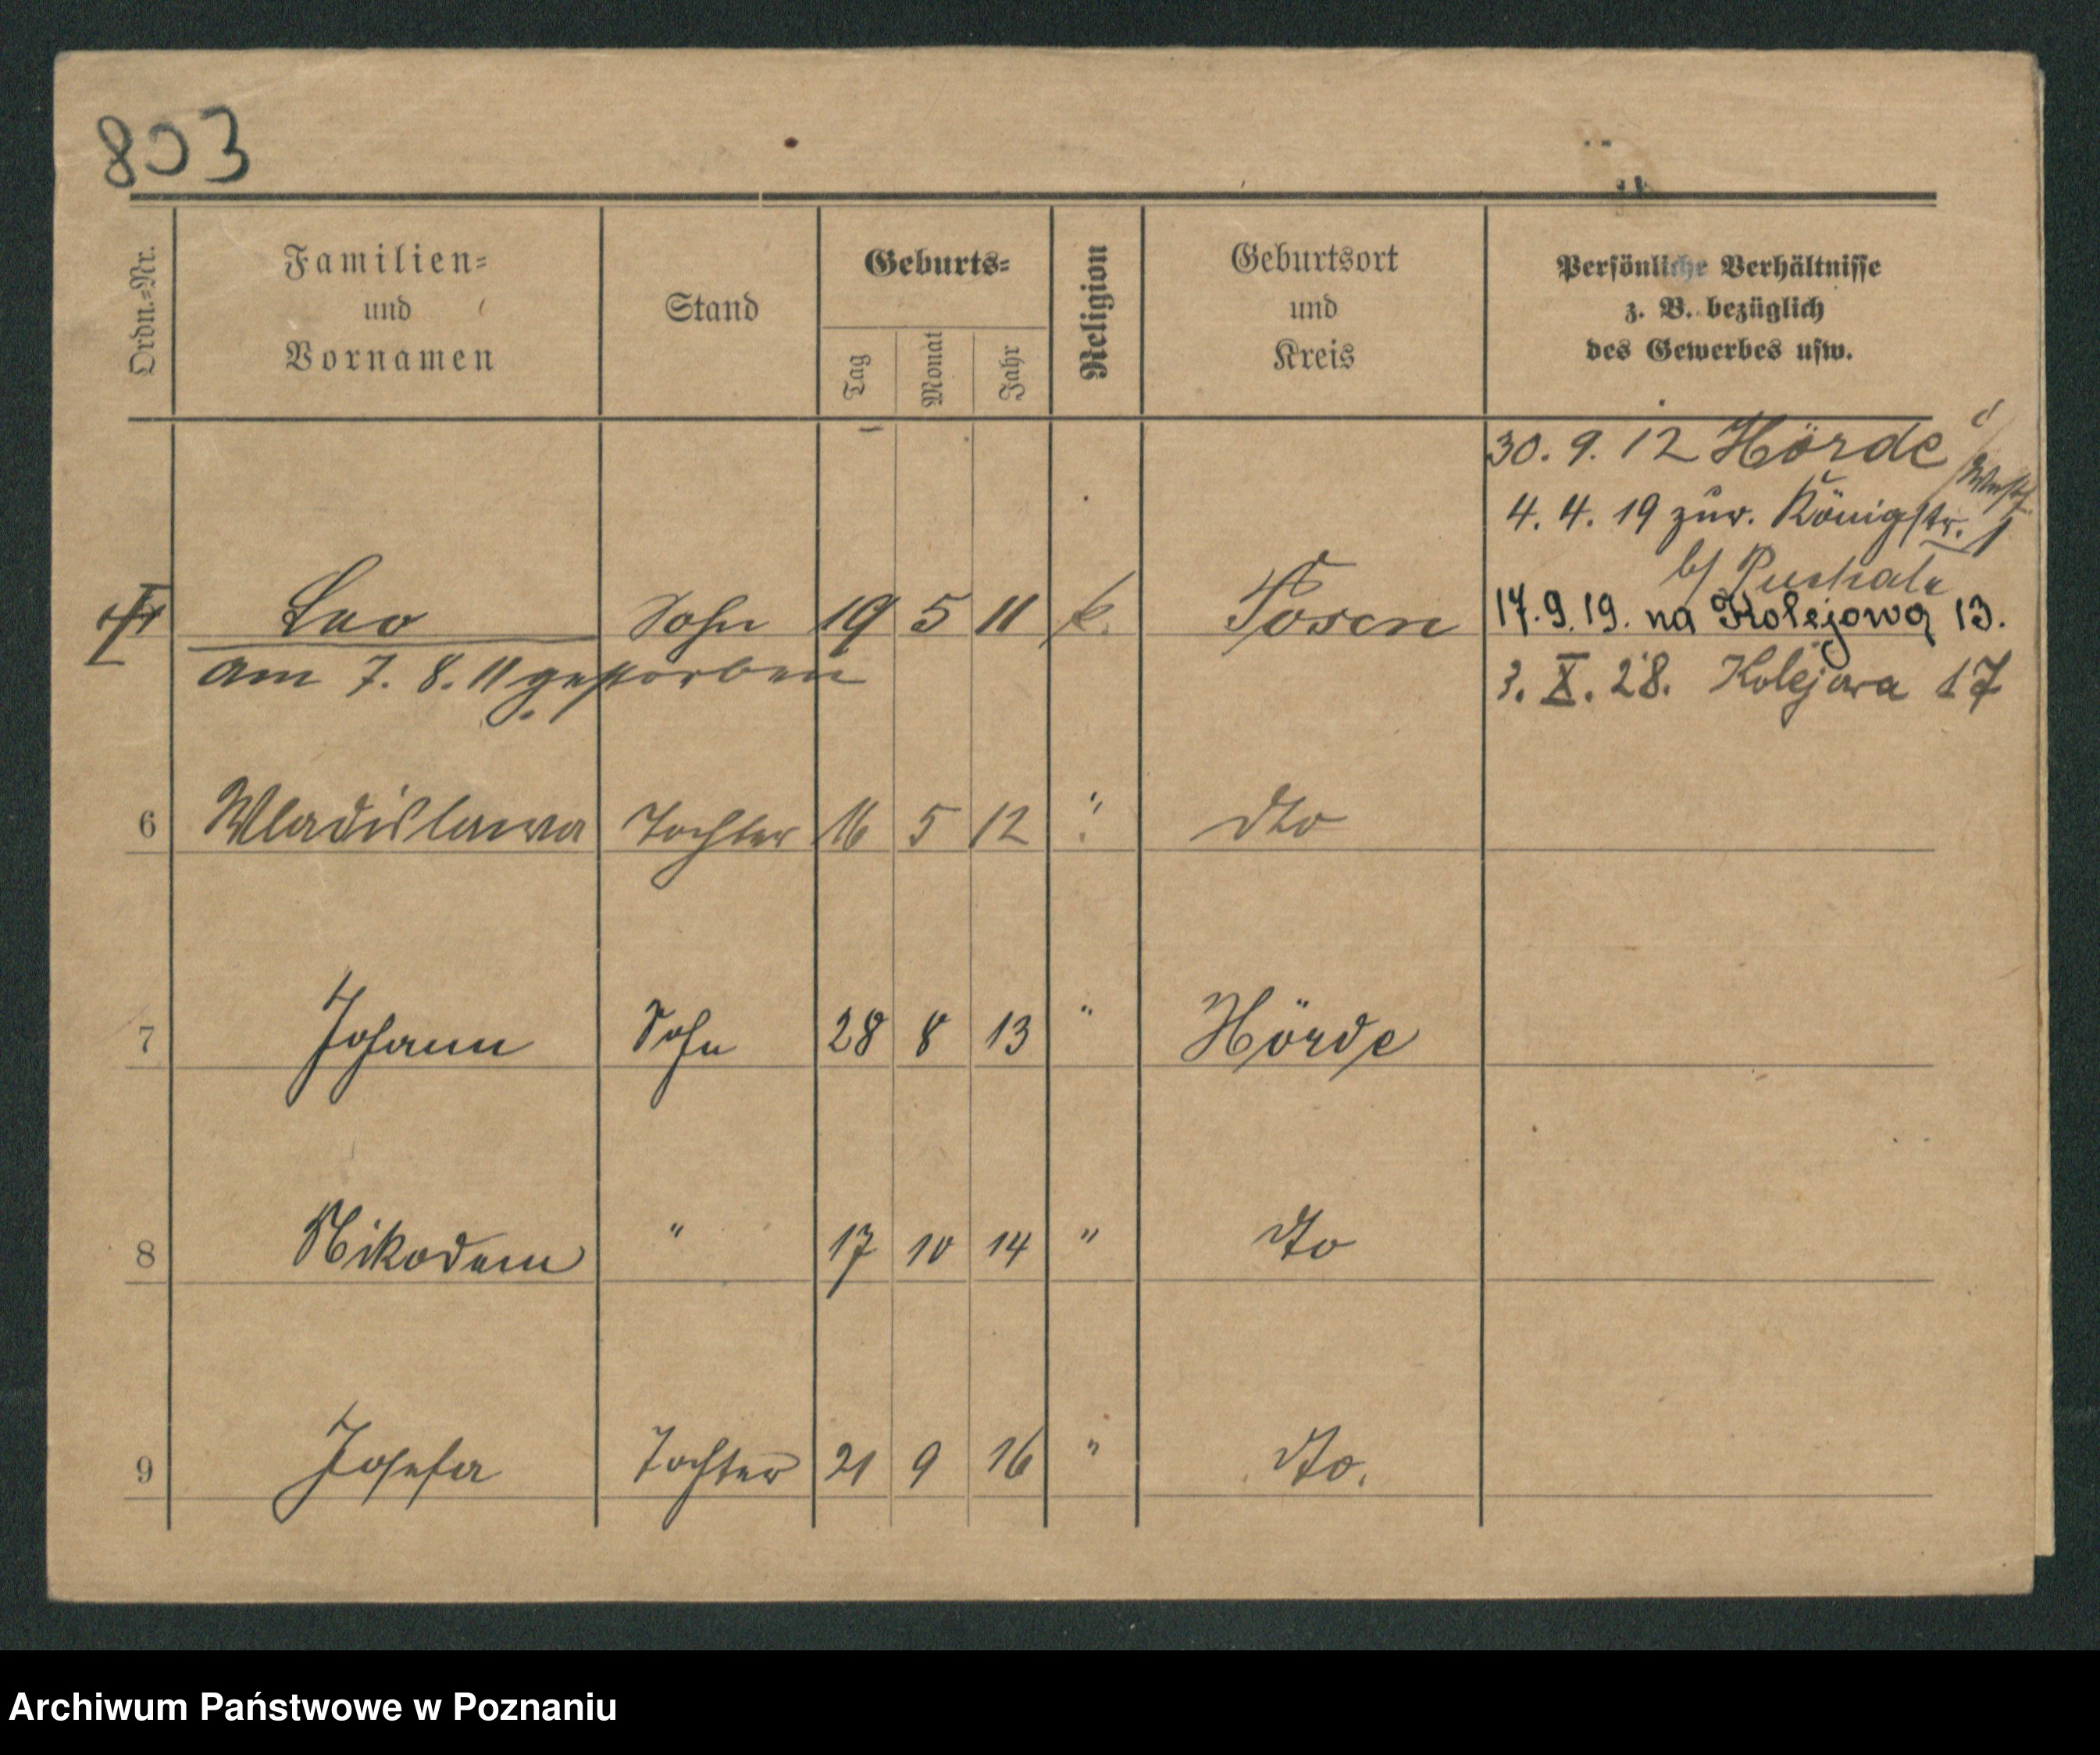 803
Ordn.-Nr.
Familien-
und
Vornamen
Stand
Geburts-
Tag
Monat
Jahr
Religion
Geburtsort
und
Kreis
Persönliche Verhältnisse
z. B. bezüglich
des Gewerbes usw.
30. 9. 12 Hörde i/Westf.
4. 4. 19 zur. Königstr. 1
b/
Leo Sohn 19 5 11 k. Posen 17. 9. 19. na Kolejową 13.
am 7. 8. 11 gestorben 3. X. 28. Kolejowa 17
6 Wladislawa Tochter 16 5 12 " dto
7 Johann Sohn 28 8 13 " Hörde
8 Nikodem " 17 10 14 " dto
9 Josefa Tochter 21 9 16 " dto.
Archiwum Państwowe w Poznaniu